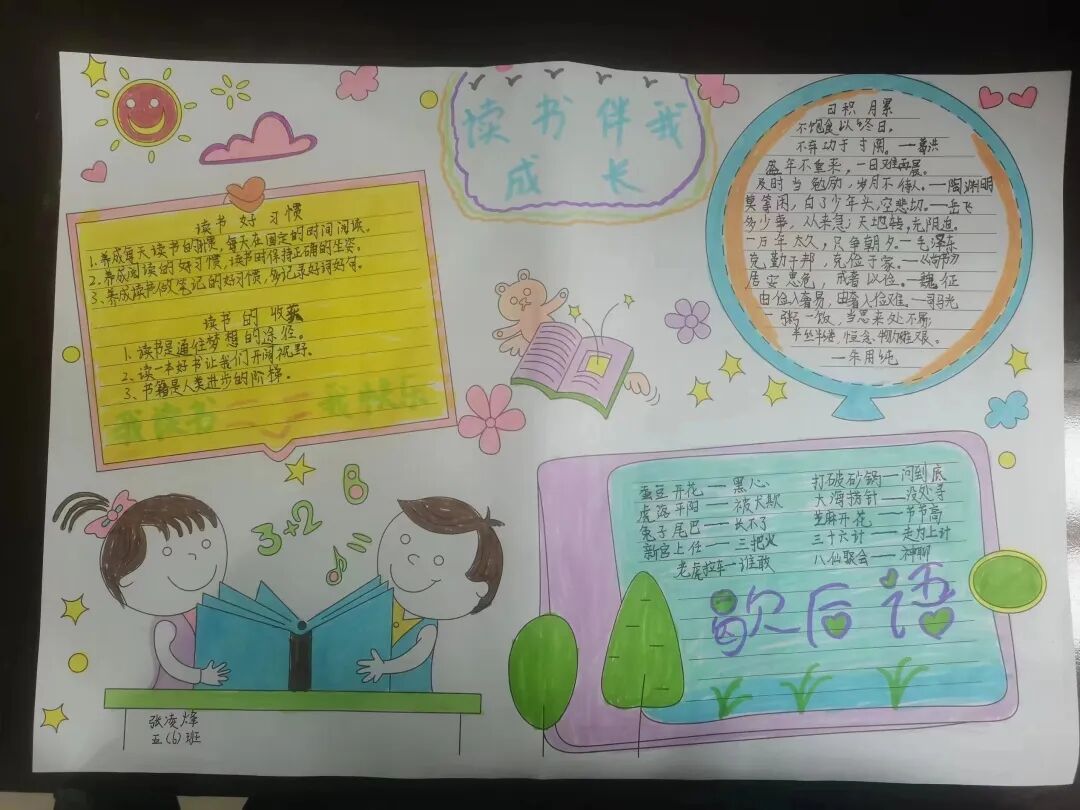 读书伴我
成长
读书好习惯
1.养成每天读书的习惯,每天在固定的时间阅读。
2.养成阅读的好习惯,读书时保持正确的坐姿。
3、养成读书做笔记的好习惯,多记录好词好句。
读书的收获
1.读书是通往梦想的途径。
2、读一本好书让我们开阔视野。
3、书籍是人类进步的阶梯。
我读书 我快乐
日积月累
不饱食以终日,
不弃功于寸阴。—葛洪
盛年不重来,一日难再晨。
及时当勉励,岁月不待人。—陶渊明
莫等闲,白了少年头,空悲切。—岳飞
多少事,从来急;天地转,光阴迫。
一万年太久,只争朝夕。—毛泽东
克勤于邦,克俭于家。—《尚书》
居安思危,戒奢以俭。—魏征
由俭入奢易,由奢入俭难。—司马光
一粥一饭,当思来处不易
半丝半缕,恒念物力维艰。
—朱用纯
3+2
8
蚕豆开花——黑心
虎落平阳——被犬欺
兔子尾巴——长不了
新官上任——三把火
老虎拉车—谁敢
打破砂锅——问到底
大海捞针——没处寻
芝麻开花——节节高
三十六计——走为上计
八仙聚会——神聊
歇后语
张凌烽
五(6)班